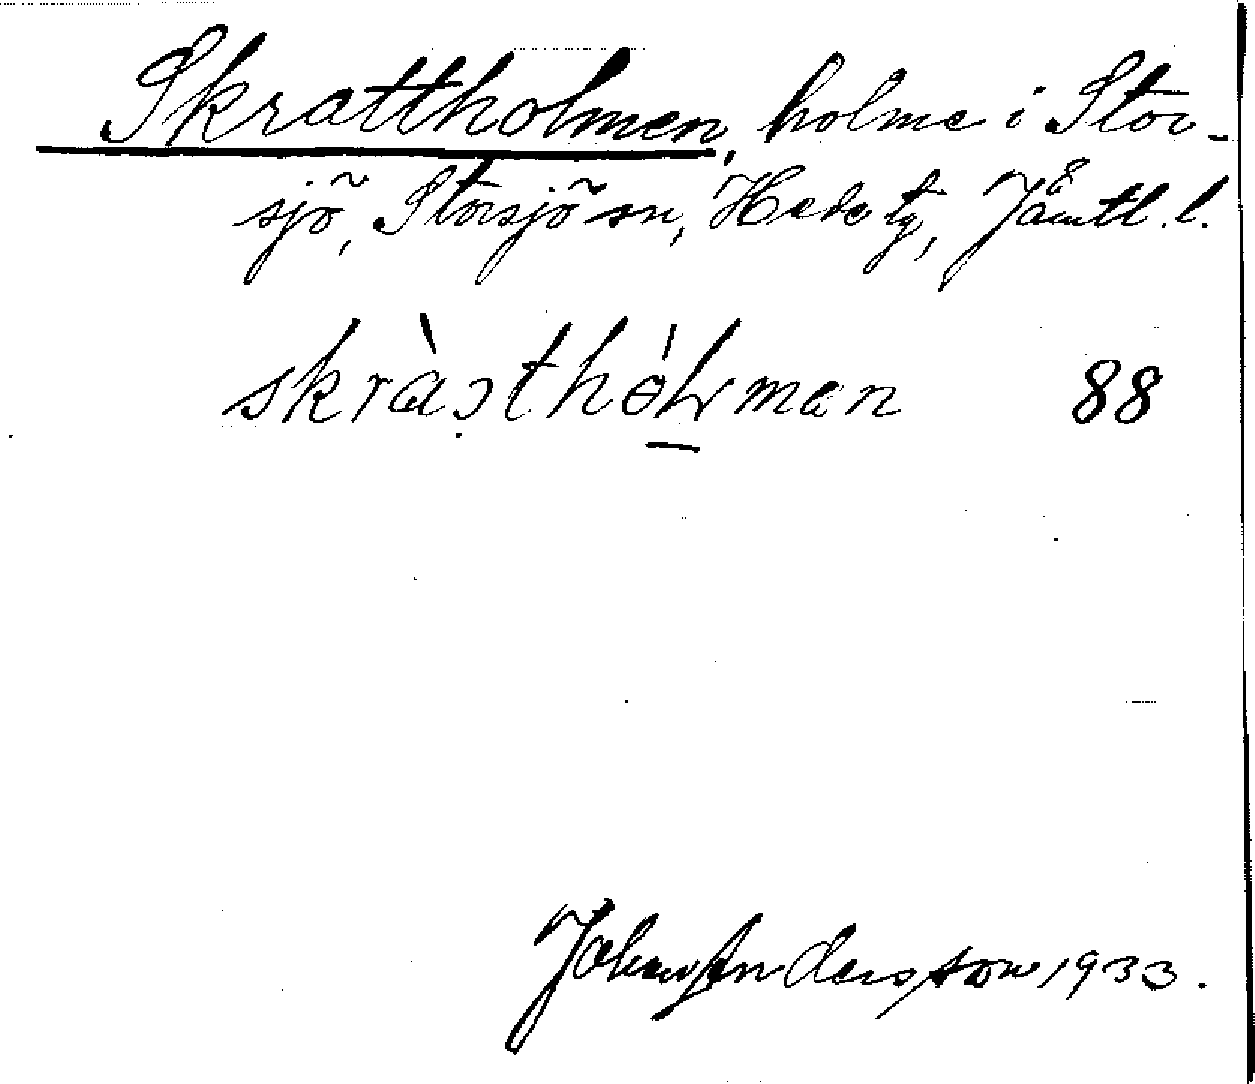 Skrattholmen, holme i Stor-
sjö, Storsjö sn, Hede tg, Jämtl. l.
88
Johan Andersson 1933.